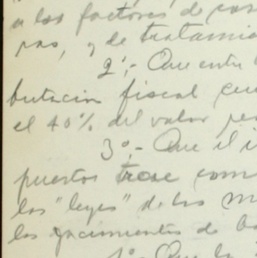 a los factores de cos
ras, y de tratamie
2º,- Que entre
butación fiscal
el 40% del valor
3º,- Que el i
puestos trae com
las "leyes" de los m
los yacimientos de
Que la